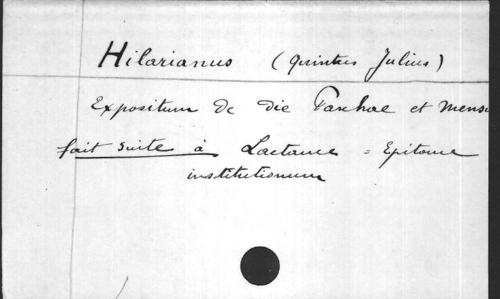 Hilarianus (Quintus Julius)
Expositum de die Paschae et mens
fait suite à Lactance = Epitome
institutionum